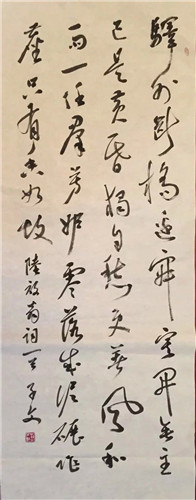 驛外斷橋邊寂寞開無主
已是黃昏獨自愁更著風和
雨一任羣芳妒零落成泥碾作
塵只有香如故 陸放翁詞一首 子文